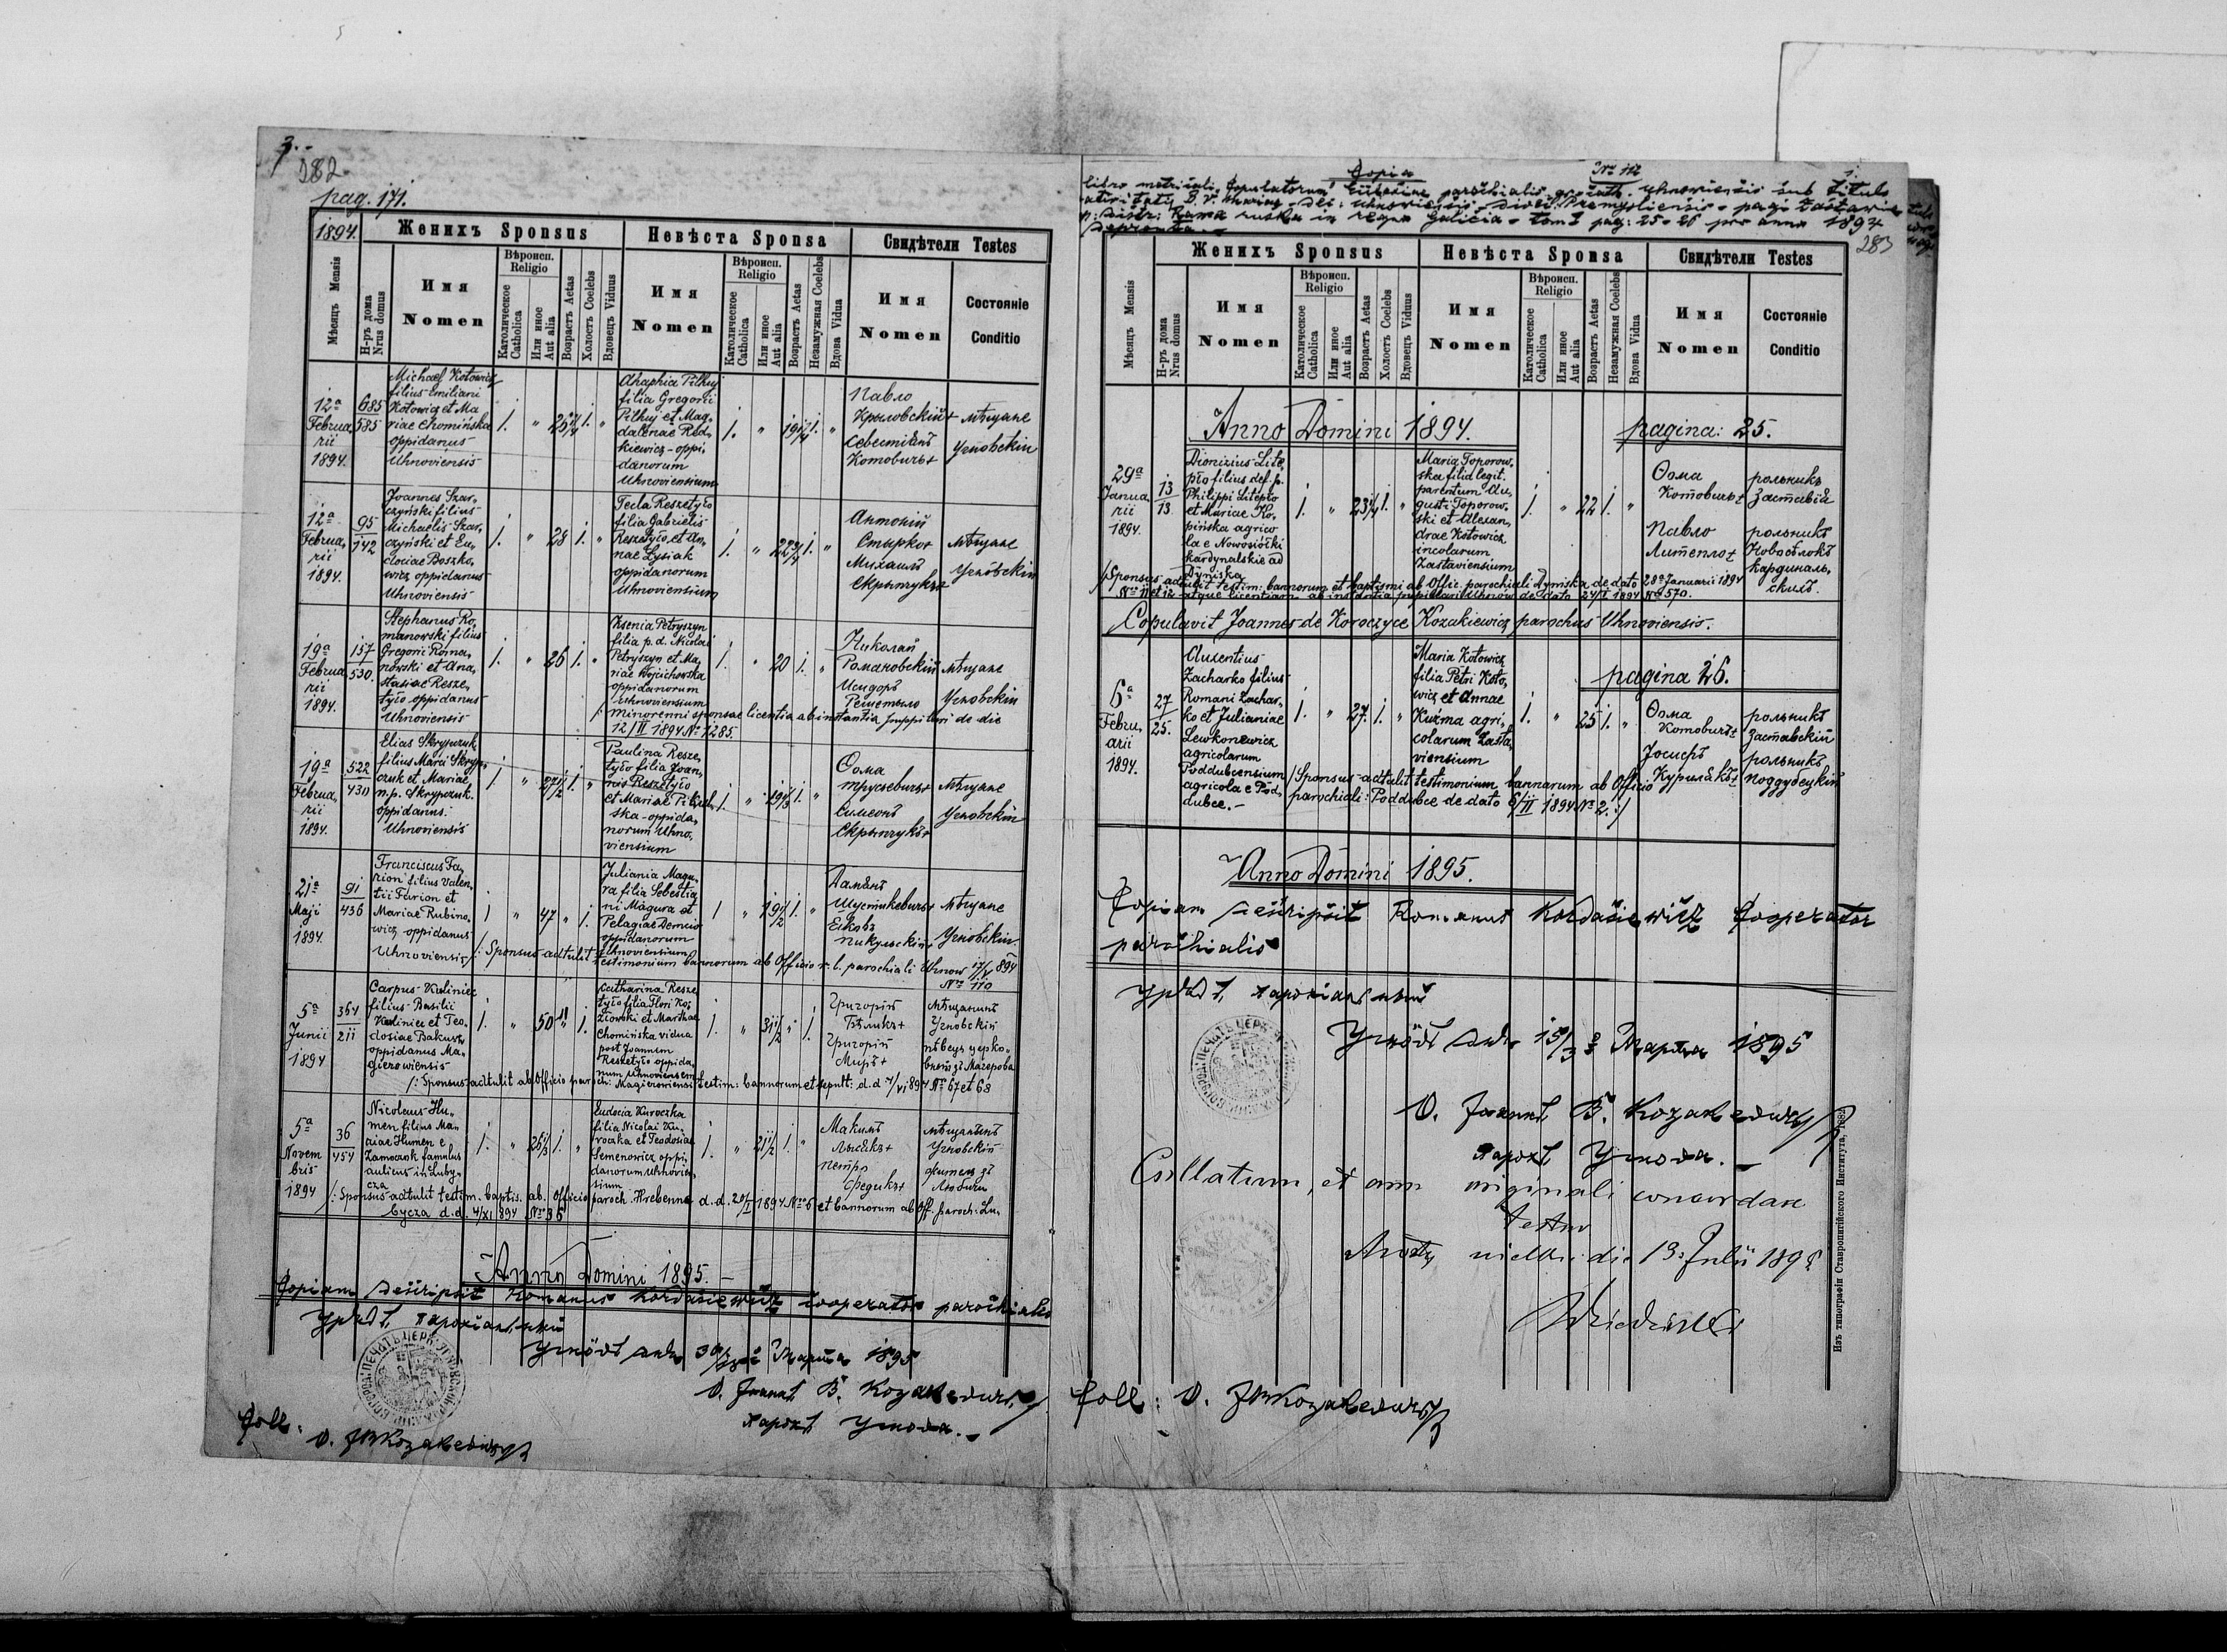 3.
282
pag. 171.
1894.
Женихъ Sponsus
Невѣста Sponsa
Свидѣтели Testes
Мѣсяцъ Mensis
Н-ръ дома Nrus domus
Имя
Nomen
Вѣроисп.
Religio
Католическое Catholica
Или иное Aut alia
Возрастъ Aetas
Холостъ Coelebs
Вдовецъ Viduus
Имя
Nomen
Вѣроисп.
Religio
Католическое Catholica
Или иное Aut alia
Возрастъ Aetas
Незамужная Coelebs
Вдова Vidua
Имя
Nomen
Состояніе
Conditio
12a
Februa
rii
1894.
685
585
Michael Kotowicz
filius Emiliani
Kotowicz et Ma
riae Chomińska
oppidanus
Uhnoviensis
1. " 1. "
Ahaphia Pilhuj
filia Gregorii
Pilhuj et Mag,
dalenae Red,
kiewicz - oppi,
danorum
Uhnoviensium
1. " 1. "
Павло
Крыловскій+
Севестіянъ
Котовичъ+
мѣщане
Угновскіи
12a
Februa,
rii
1894.
95
142
Joannes Szar,
czyński filius
Michaelis Szar,
czyński et Eu,
dociae Boszko,
wicz oppidanus
Uhnoviensis
1. " 28 1. "
Tecla Reszetyło
filia Gabrielis
Reszetyło et An,
nae Łysiak
oppidanorum
Uhnoviensium
1. " 1. "
Антоній
Стырко+
Михаилъ
Скрыпчукъ+
мѣщане
Угновскіи
19a
Februa,
rii
1894.
157
530.
Stephanus Ro,
manowski filius
Gregorii Roma,
nowski et Ana,
stasiae Resze,
tyło oppidanus
Uhnoviensis
1. " 26 1. "
Ksenia Petryszyn
filia p.d. Nicolai
Petryszyn et Ma,
riae Wojcichowska
oppidanorum
Uhnoviensium
1. " 20 1. "
Николай
Романовскій
Исидоръ
Решетыло
мѣщане
Угновскіи
/: Minorenni sponsae licentia ab instantia puppilari de die
12/II 1894 No 1285.
19a
Februa,
rii
1894.
522
430
Elias Skrypczuk
filius Marci Skryp,
czuk et Mariae
n.p. Skrypczuk.
oppidanus.
Uhnoviensis
1 " 27 1/2 1. "
Paulina Resze,
tyło filia Joan,
nis Reszetyło
et Mariae
ska - oppida,
norum Uhno,
viensium
1. " 1. "
Ѳома
Трусевичъ+
Симеонъ
Скрыпчукъ+
мѣщане
Угновскіи
21a
Maji
1894.
91
436
Franciscus Fa,
rion filius Valen,
tii Farion et
Mariae Rubino,
wicz oppidanus
Uhnoviensis
1 " 47 " 1.
Juliania Magu,
ra filia Sebestia,
ni Magura et
Pelagiae Demcio
oppidanorum
Uhnoviensium
1 " 19 1/2 1. "
Даміянъ
Шустикевичъ+
мѣщане
Угновскіи.
/: Sponsus adtulit testimonium bannorum ab Officio r. l. parochiali Uhnow 17/V 894
No 110
5a
Junii
1894
364
211
Carpus Kaliniec
filius Basilii
Kaliniec et Teo,
dosiae Bakus
oppidanus Ma,
gierowiensis
1. " 50 " 1.
Catharina Resze
tyło filia Flori Ko,
ziowski et Marthae
Chomińska vidua
post Joannem
Reszetyło oppida,
num Uhnoviensem
1. " 31 1/2 " 1.
Григорій
Бѣликъ+
Григорій
Миръ+
мѣщанинъ
Угновскій
пѣвецъ церко,
вный зъ Магерова
/: Sponsus adtulit ab Officio paroch: Magierowiensi testim: bannorum et sepult: d.d 4/VI 894 No 67 et 68
5a
Novem
bris
1894
36
454
Nicolaus Hu,
men filius Ma,
riae Humen e
Zamoczek famulus
aulicus in Luby,
cza
1. " 25 1/3 1. "
Eudocia Kuroczka
filia Nicolai Ku,
roczka et Teodosiae
Semenowicz oppi,
danorum Uhnovien,
sium
1. " 21 1/2 1. "
Макимъ
Лысякъ+
Петро
Федикъ+
мѣщанинъ
Угновскій
житель зъ
Любичи
/: Sponsus adtulit testim. baptis. ab. Officio paroch. Hrebenne d.d. 20/I 1894 No 6 et bannorum ab Off. paroch: Lu,
bycza d.d. 4/XI 894 No 36
Anno Domini 1895.
Copiam descripsit Romanus Kordasiewicz cooperator parochialis
Урядъ парохіальный
Угнôвъ дня Марта 1895
О. Іоаннъ В. Козакевичъ
парохъ Угнова.
Coll: О. ІВКозакевичъ
Copia
No 112
1.
libro metricali Copulatorum Ecclesiae parochialis gr. cath. Uhnoviensis sub titulo
Nativitatis B. V. Mariae - Dec: Uhnoviensis - Dioec: Premysliensis - pagi Zastawie
p: Distr: Rawa ruska in regno Galicia - tom I pag: 25-26 pro anno 1894
deprompta.
283
Женихъ Sponsus
Невѣста Sponsa
Свидѣтели Testes
Мѣсяцъ Mensis
Н-ръ дома Nrus domus
Имя
Nomen
Вѣроисп.
Religio
Католическое Catholica
Или иное Aut alia
Возрастъ Aetas
Холостъ Coelebs
Вдовецъ Viduus
Имя
Nomen
Вѣроисп.
Religio
Католическое Catholica
Или иное Aut alia
Возрастъ Aetas
Незамужная Coelebs
Вдова Vidua
Имя
Nomen
Состояніе
Conditio
Anno Domini 1894.
pagina: 25.
29a
Janua,
rii
1894.
13
13.
Dionizius Lite,
pło filius def. p.
Philippi Litepło
et Mariae Ko,
pińska agrico
la e Nowosiółki
kardynalskie ad
Dyniska
1. " 23 1/4 1. "
Maria Toporow,
ska filia legit.
parentum Au,
gusti Toporow,
ski et Alexan,
drae Kotowicz
incolarum
Zastaviensium
1. " 22 1. "
Ѳома
Котовичъ+
Павло
Литепло+
рольникъ
Заставія
рольникъ
Новосѣлокъ
кардиналь,
скихъ.
/ Sponsus adtulit testim: bannorum et baptismi ab Offic. parochiali Dyniska de dato 28a Januarii 1894
No 11 et 12 atque licentiam ab instantia pupillari Uhnow de dato 24/I 1894 No 570.
Copulavit Joannes de Koroczyce Kozakiewicz parochus Uhnoviensis.
pagina 26.
6a
Febru,
arii
1894.
27
25.
Auxentius
Zacharko filius
Romani Zachar,
ko et Julianiae
Lewkoniewicz
agricolarum
Poddubcensium
agricola e Pod,
dubce.-
1. " 27. 1. "
Maria Kotowicz
filia Petri Koto,
wicz et Annae
Kuźma agri,
colarum Zasta,
viensium
1. " 25 1. "
Ѳома
Котовичъ+
Іосифъ
Курилякъ+
рольникъ
Заставскій
рольникъ
поддубецкій
/ Sponsus adtulit testimonium bannorum ab Officio
parochiali: Poddubce de dato 6/II 1894 No 2. :/
Anno Domini 1895.
Copiam descripsit Romanus Kordasiewicz Cooperator
parochialis
Урядъ парохіальный
Угнôвъ дня 15/3 Марта 1895
О. Іоаннъ В. Козакевичъ
парохъ Угнова.
Collatum, et cum originali concordare
testor
die 13 Julii 1895
Coll: О. ІВКозакевичъ
Изъ типографіи Ставропигійского Института, 1882